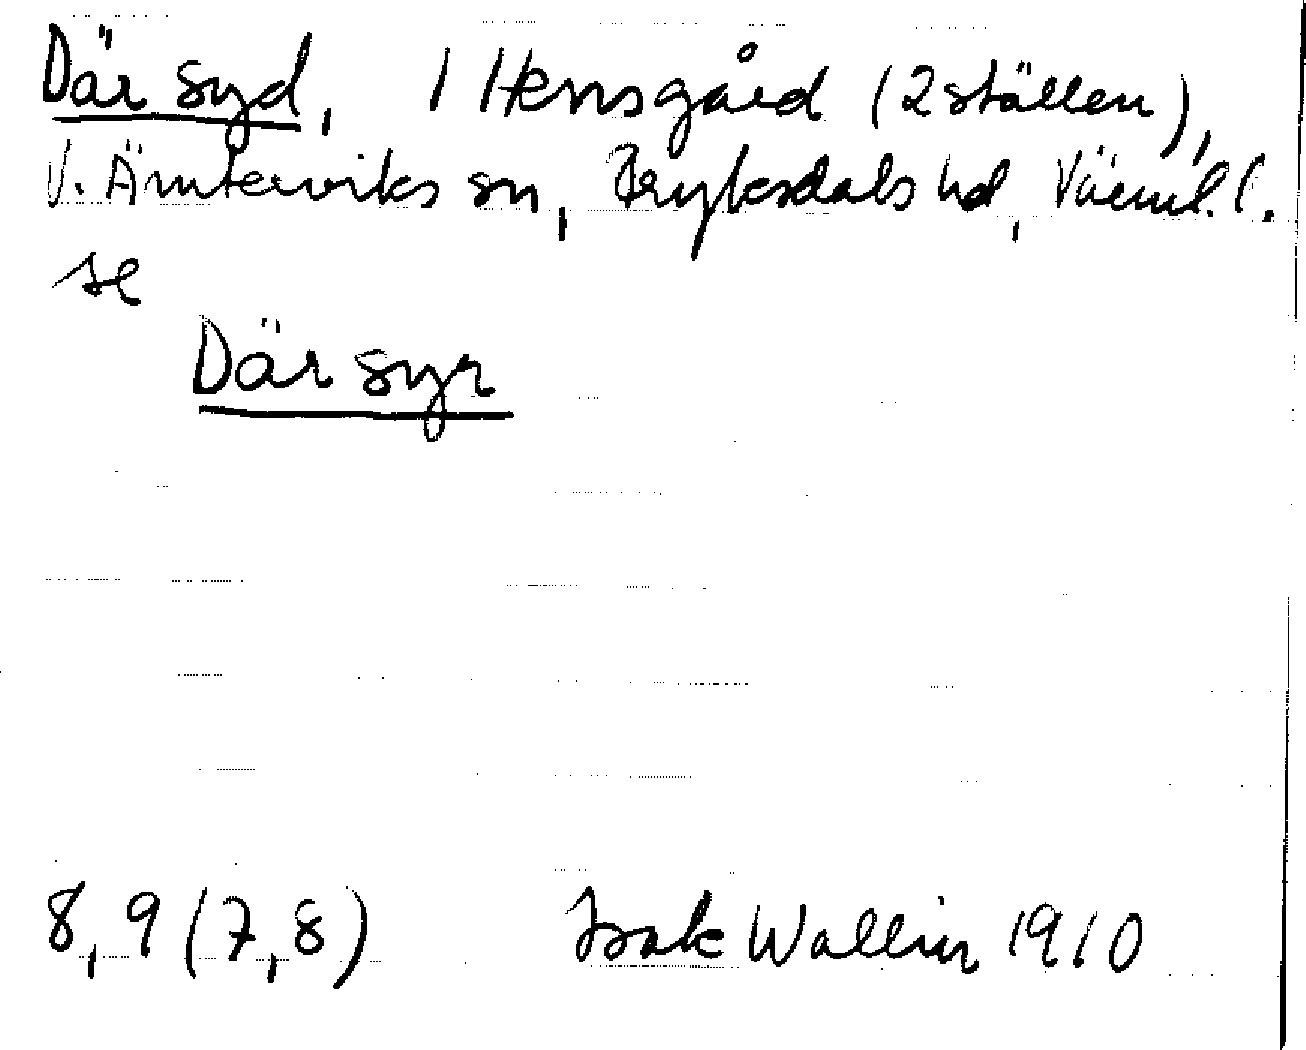 Där syd, 1 Herrsgård (2 ställen),
V. Ämterviks sn, Fryksdals hd, Värml. l.
se
Där syr
8, 9 (7, 8) Isak Wallin 1910